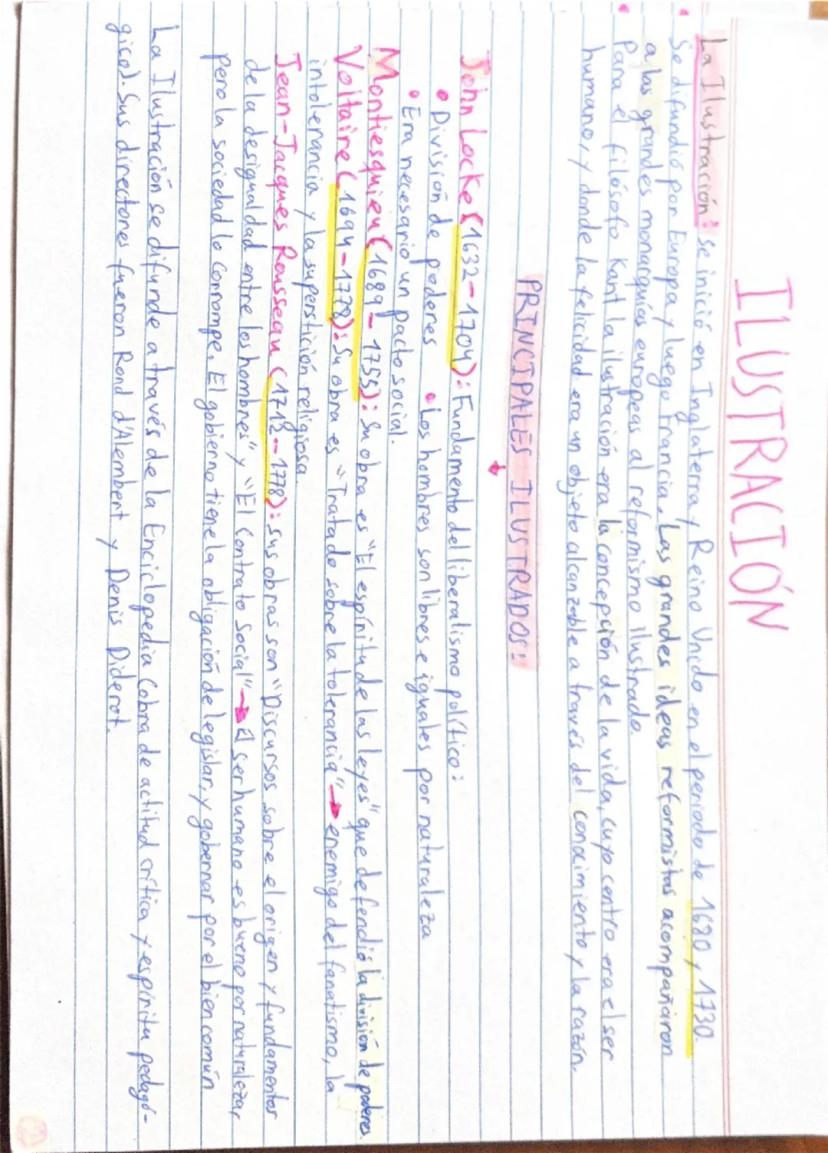 ILUSTRACIÓN
La Ilustración: se inició en Inglaterra y Reino Unido en el periodo de 1680 y 1730.
• Se difundió por Europa y luego Francia. Las grandes ideas reformistas acompañaron
a las grandes monarquías europeas al reformismo ilustrado.
• Para el filósofo Kant la ilustración era la concepción de la vida, cuyo centro era el ser
humano, y donde la felicidad era un objeto alcanzable a través del conocimiento y la razón.
PRINCIPALES ILUSTRADOS:
John Locke (1632-1704): Fundamento del liberalismo político:
• División de poderes • Los hombres son libres e iguales por naturaleza
• Era necesario un pacto social.
Montiesquieu (1689-1755): Su obra es "El espíritu de las leyes" que defendió la división de poderes.
Voltaire (1694-1778): Su obra es "Tratado sobre la tolerancia" → enemigo del fanatismo, la
intolerancia y la superstición religiosa.
Jean-Jacques Rousseau (1712-1778): Sus obras son "Discursos sobre el origen y fundamentos
de la desigualdad entre los hombres" y "El Contrato Social" → El ser humano es bueno por naturaleza,
pero la sociedad lo corrompe. El gobierno tiene la obligación de legislar, y gobernar por el bien común
La Ilustración se difunde a través de la Enciclopedia (obra de actitud crítica y espíritu pedagó-
gico). Sus directores fueron Rond d'Alembert y Denis Diderot.